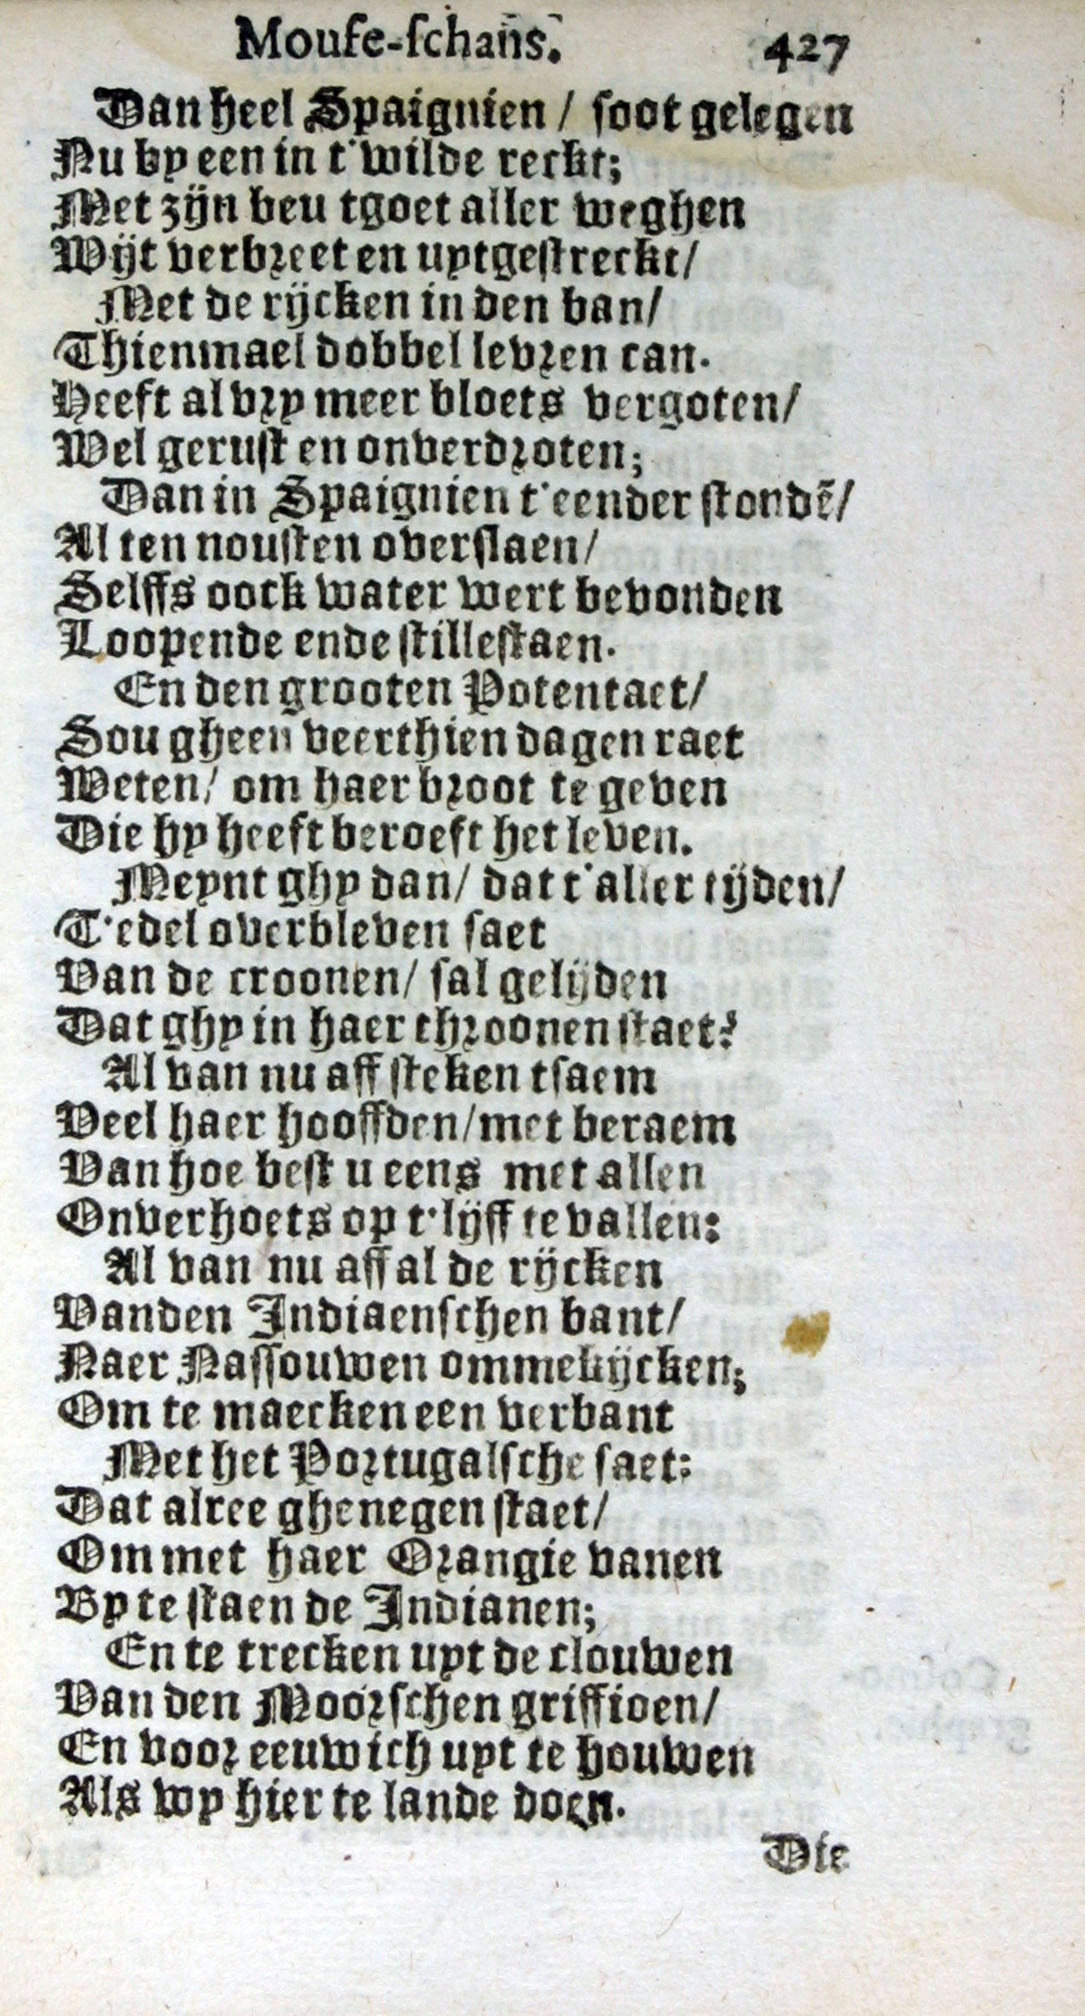 Mouse-schans. 427
Dan heel Spaignien / soot gelegen
Nu by een in t'wilde reckt;
Met zijn veu tgoet aller weghen
Wijt verbreet en uytgestreckt/
Met de rijcken in den ban/
Thienmael dobbel levren can.
Heeft al vry meer bloets vergoten/
Wel gerust en onverdroten;
Dan in Spaignien t'eender stondē/
Al ten nousten overslaen/
Selffs oock water wert bevonden
Loopende ende stillestaen.
En den grooten Potentaet/
Sou gheen veerthien dagen raet
Weten/ om haer broot te geven
Die hy heeft beroeft het leven.
Meynt ghy dan/ dat t'aller tijden/
T'edel overbleven saet
Van de croonen/ sal gelijden
Dat ghy in haer throonen staet?
Al van nu aff steken tsaem
Veel haer hooffden/met beraem
Van hoe best u eens met allen
Onverhoets op t'lijff te vallen:
Al van nu aff al de rijcken
Vanden Indiaenschen bant/
Naer Nassouwen ommekijcken;
Om te maecken een verbant
Met het Portugalsche saet:
Dat alree ghenegen staet/
Om met haer Orangie vanen
By te staen de Indianen;
En te trecken uyt de clouwen
Van den Moorschen griffioen/
En voor eeuwich uyt te houwen
Als wy hier te lande doen.
Die